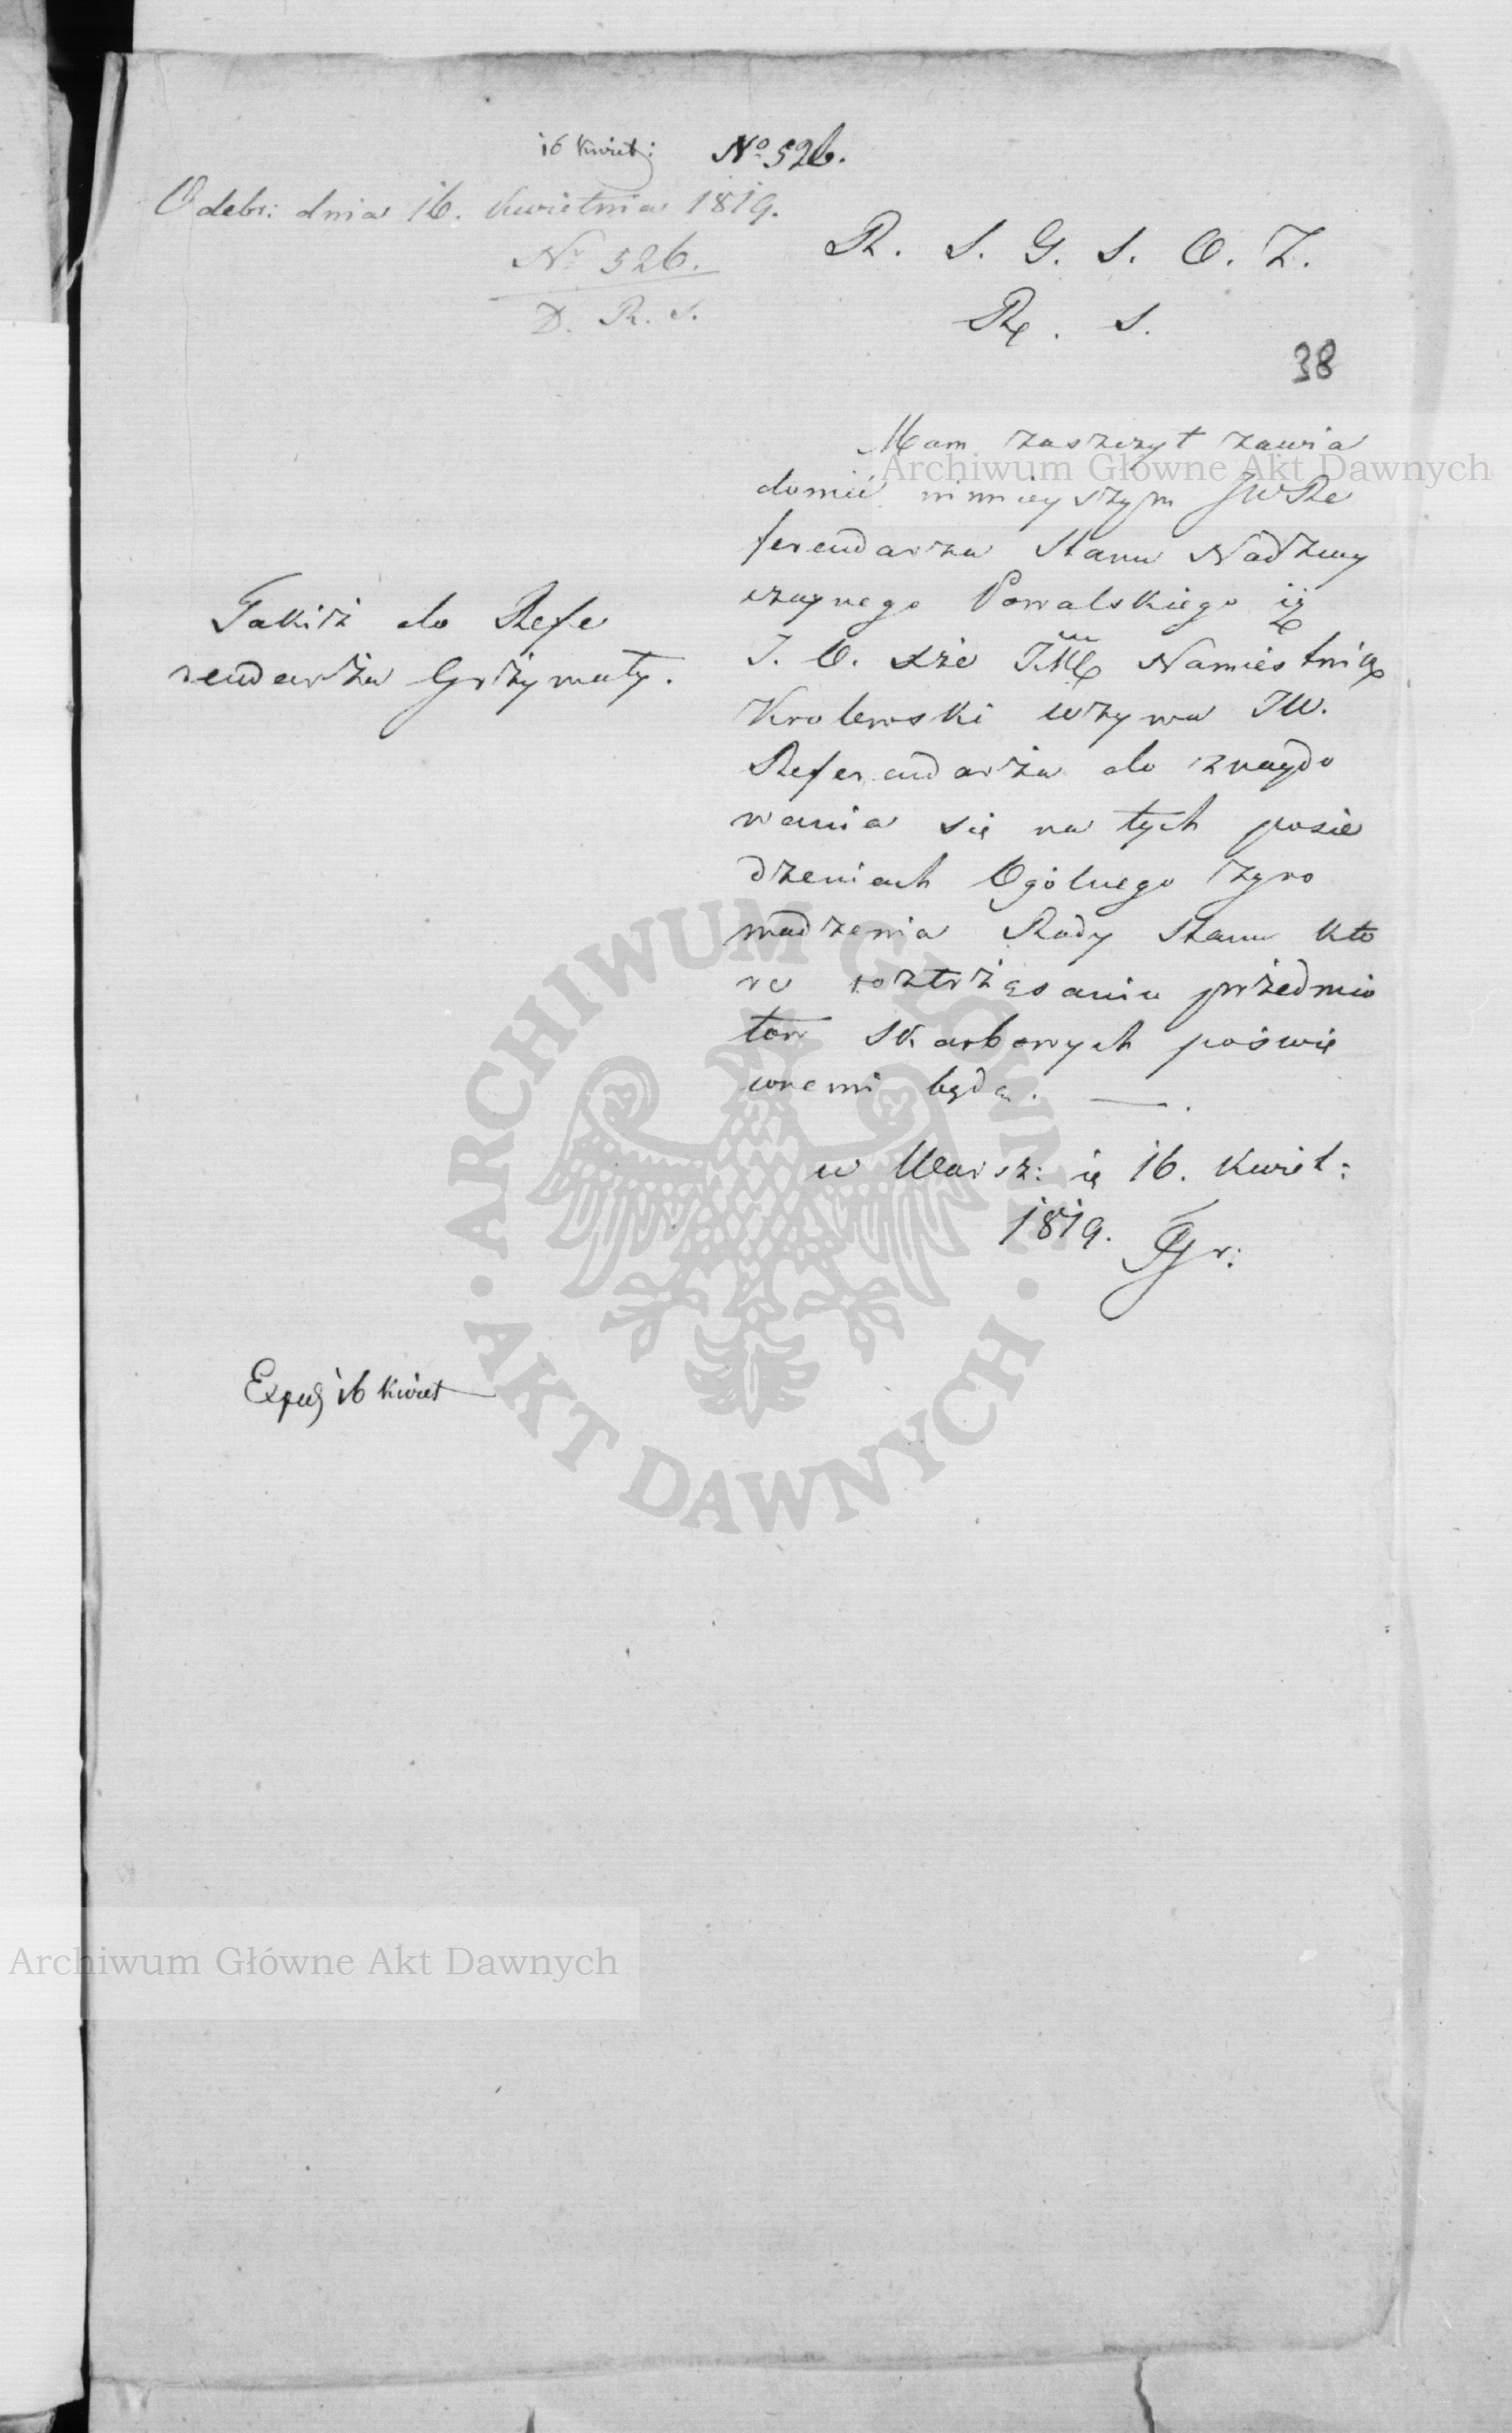 16 Kwiet: No 526.
Odebr: dnia 16. Kwietnia 1819.
No 526.
D. R. S.
R. S. G. S. O. Z.
R. S.
38
Mam zaszczyt zawia
domić ninieyszym JWRe
ferendarza Stanu Nadzwy
czaynego Kowalskiego iż
J. O. Xże JMć Namiestnik
Krolewski wzywa JW.
Referendarza do znaydo
wania się na tych posie
dzeniach Ogólnego Zgro
madzenia Rady Stanu kto
re roztrząsaniu przedmio
tow Skarbowych poświę
conemi będą. —.
w Warsz: 16. Kwiet:
1819.
Takiż do Refe
rendarża Grżymały.
Exped 16 Kwiet
Archiwum Główne Akt Dawnych
ARCHIWUM GŁÓWNE · AKT DAWNYCH ·
Archiwum Główne Akt Dawnych